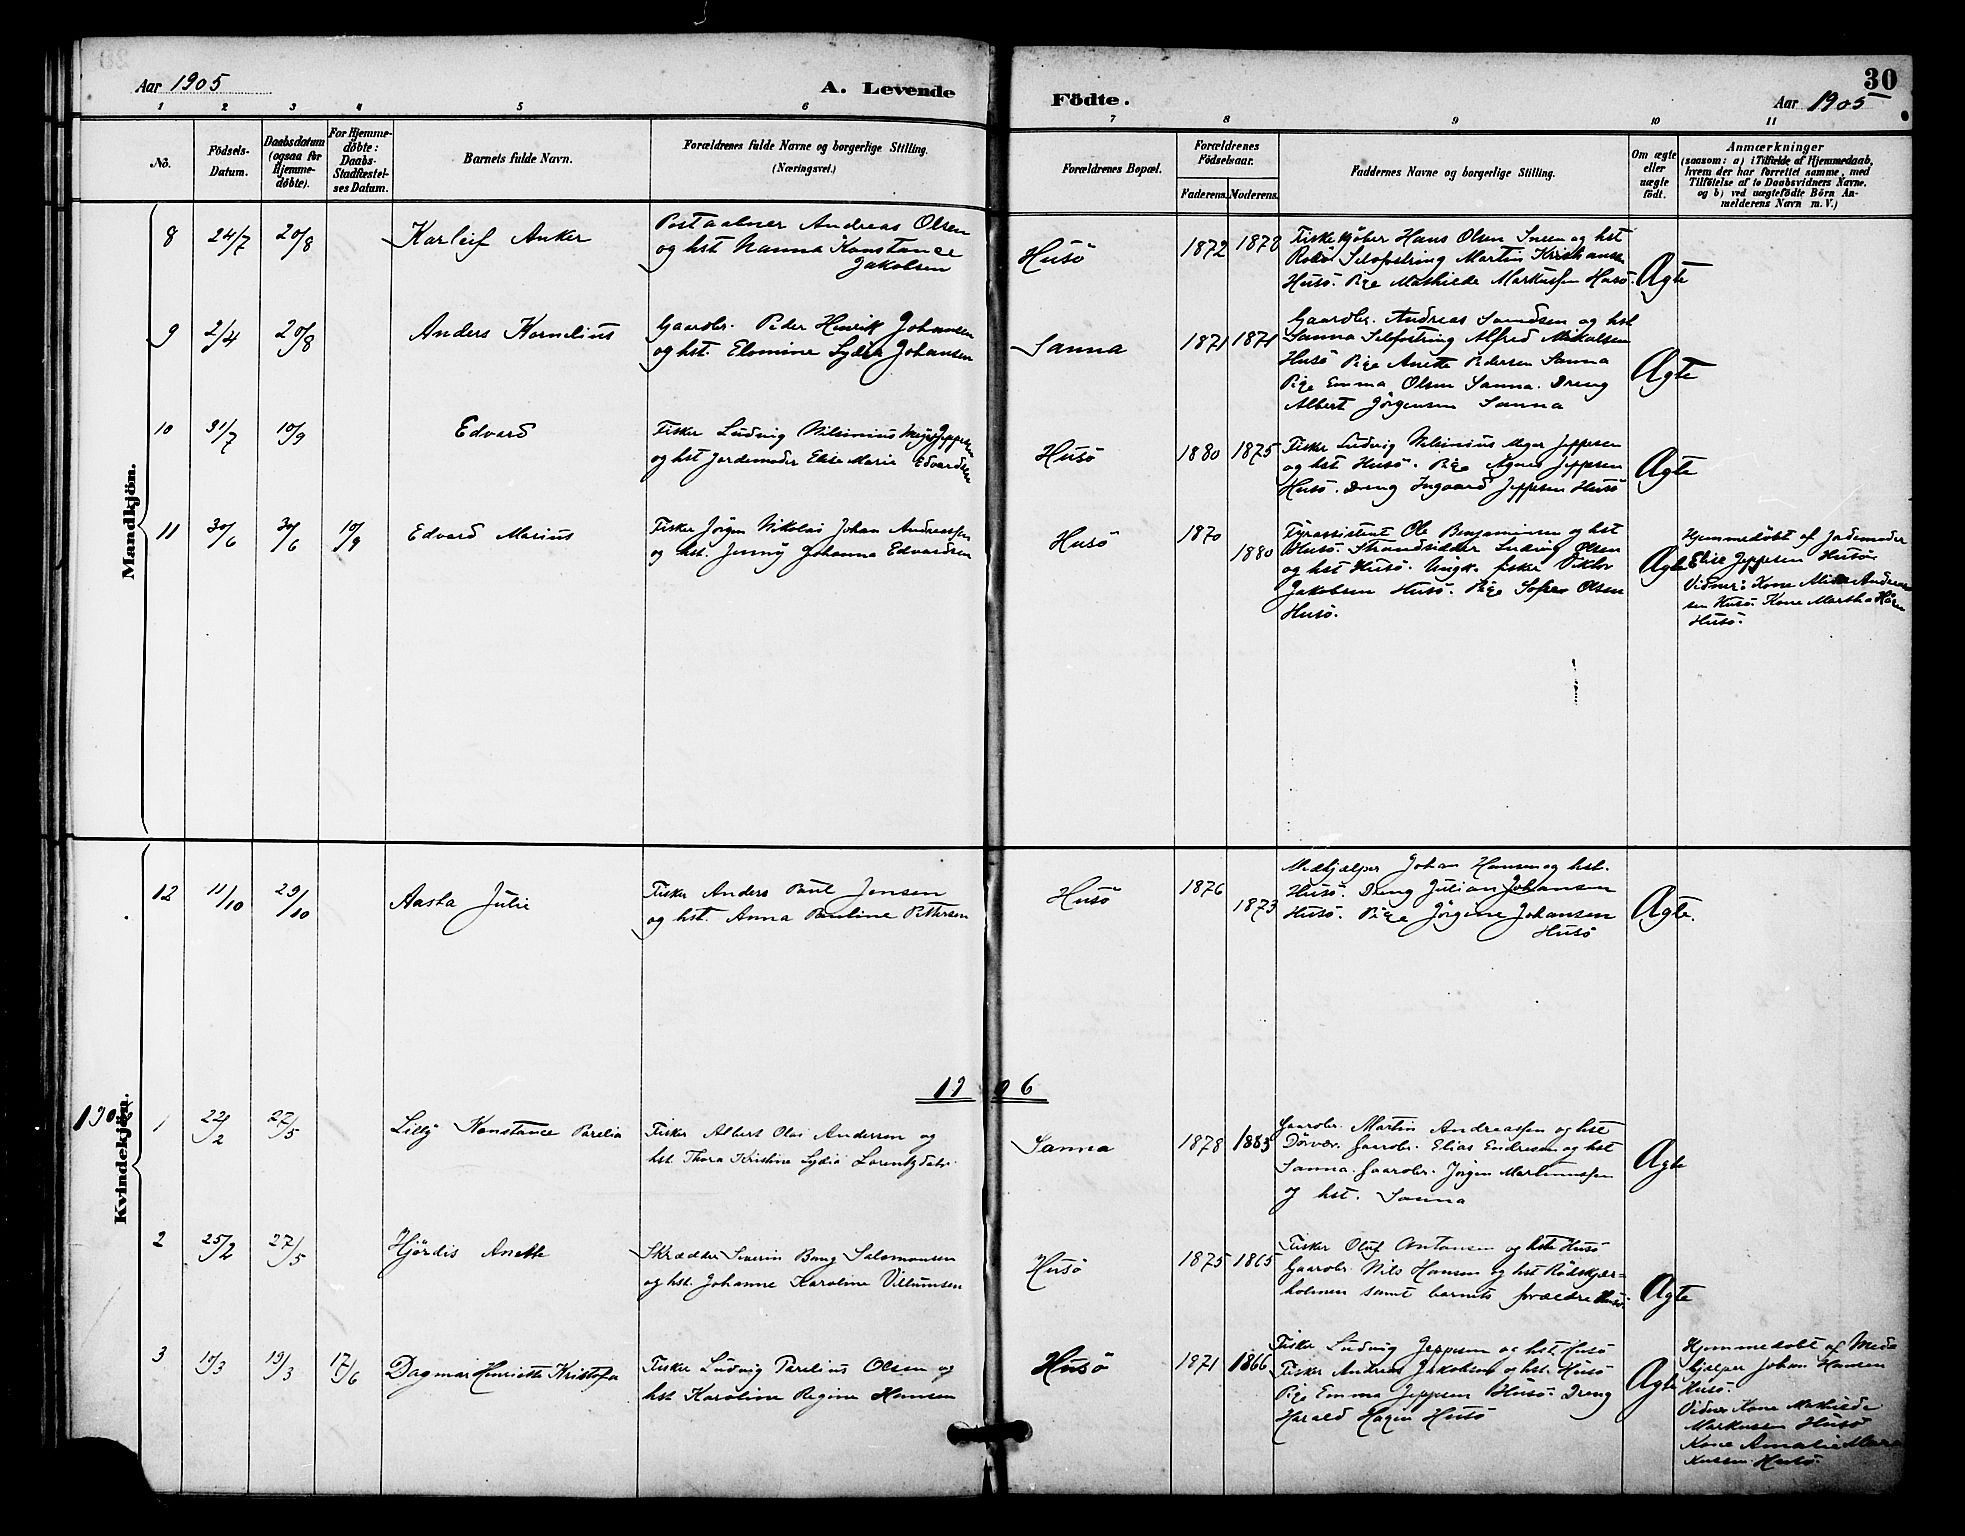 Aar 1905
A. Levende
Födte.
30
Aar 1905
1 2 3 4 5 6 7 8 9 10 11
Nö.
Födsels-
Datum.
Daabsdatum
(ogsaa for
Hjemme-
døbte).
For Hjemme-
døbte:
Daabs-
Stadfæstel-
ses Datum.
Barnets fulde Navn.
Forældrenes fulde Navne og borgerlige Stilling.
(Næringsvei.)
Forældrenes Bopæl.
Forældrenes
Födselsaar.
Faderens. Moderens.
Faddernes Navne og borgerlige Stilling.
Om ægte
eller
uægte
født.
Anmærkninger
(saasom: a) i Tilfælde af Hjemmedaab,
hvem der har forrettet samme, med
Tilföielse af to Daabsvidners Navne,
og b) ved uægtefödte Börn An-
melderens Navn m. V.)
Mandkjön.
8 24/7 20/8 Karleif Anker
Postaabner Andreas Olsen
og hst Nanna Konstance
Jakobsen
Husö 1872 1878
Fiskekjøber Hans Olsen og hst
Selvfostring Martin Kristiansen
Husö. Pige Mathilde Markussen Husö.
Ægte
9 2/4 20/8 Anders Kornelius
Gaardbr. Peder Henrik Johansen
og hst. Elomine Lydia Johansen
Sanna 1871 1871
Gaardbr. Andreas og hst
Sanna Selvfostring Alfred Nikolaisen
Husö Pige Anette Pedersen Sanna
Pige Emma Olsen Sanna. Dreng
Albert Jörgensen Sanna
Ægte
10 31/7 10/9 Edvard
Fisker Ludvig Nilsinius Meyer Jeppesen
og hst Jordemoder Elise Marie Edvardsen
Husö 1880 1875
Fisker Ludvig Nilsinius Meyer Jeppesen
og hst Husö. Pige Agnes Jeppesen
Husö. Dreng Ingvard Jeppesen Husö
Ægte
11 30/6 30/6 10/9 Edvard Marius
Fisker Jörgen Nikolai Johan Andreassen
og hst. Jenny Johanna Edvardsen
Husö 1870 1880
Fyrassistent Ole Benjaminsen og hst
Husö. Strandsidder Ludvig Olsen
og hst Husö. Ungk. fisker Viktor
Jakobsen Husö. Pige Sofie Olsen
Husö.
Ægte
Hjemmedøbt af Jordemoder
Elise Jeppesen Husö
Vidner: Kone Andreas-
sen Husö. Kone Martha
Husö.
Kvindekjön.
12 11/10 29/10 Aasta Julie
Fisker Anders Paul Jensen
og hst. Anna Pauline Pettersen
Husö 1876 1873
Medhjælper Johan Hansen og hst.
Husö. Dreng Julian Johansen
Husö. Pige Jörgine Johansen
Husö
Ægte.
1906
1906
1 22/2 27/5 Lilly Konstance Parelia
Fisker Albert Olai Andersen og
hst. Thora Kristine Lydia Lorentzdatr.
Sanna 1878 1883
Gaardbr. Martin Andreassen og hst
Dørvær. Gaardbr. Elias Endresen og hst
Sanna. Gaardbr. Jörgen Martinussen
og hst. Sanna
Ægte
2 25/2 27/5 Hjördis Anette
Skrædder Severin Bang Salomonsen
og hst. Johanne Karoline Villumsen
Husö 1875 1865
Fisker Oluf Antonsen og hst Husö
Gaardbr. Nils Hansen og hst Rödskjær-
holmen samt barnets forældre Husö.
Ægte
3 19/3 17/6 Dagmar Henriette Kristofa
Fisker Ludvig Parelius Olsen og
hst Karoline Regine Hansen
Husö 1871 1866
Fisker Ludvig Jeppesen og hst. Husö
Fisker Andreas Jakobsen og hst. Husö
Pige Emma Jeppesen Husö. Dreng
Harald Hagen Husö
Ægte
Hjemmedøbt af Med-
hjælper Johan Hansen
Husö.
Vidner Kone Mathilde
Markussen Husö
Kone Amalie
Husö.